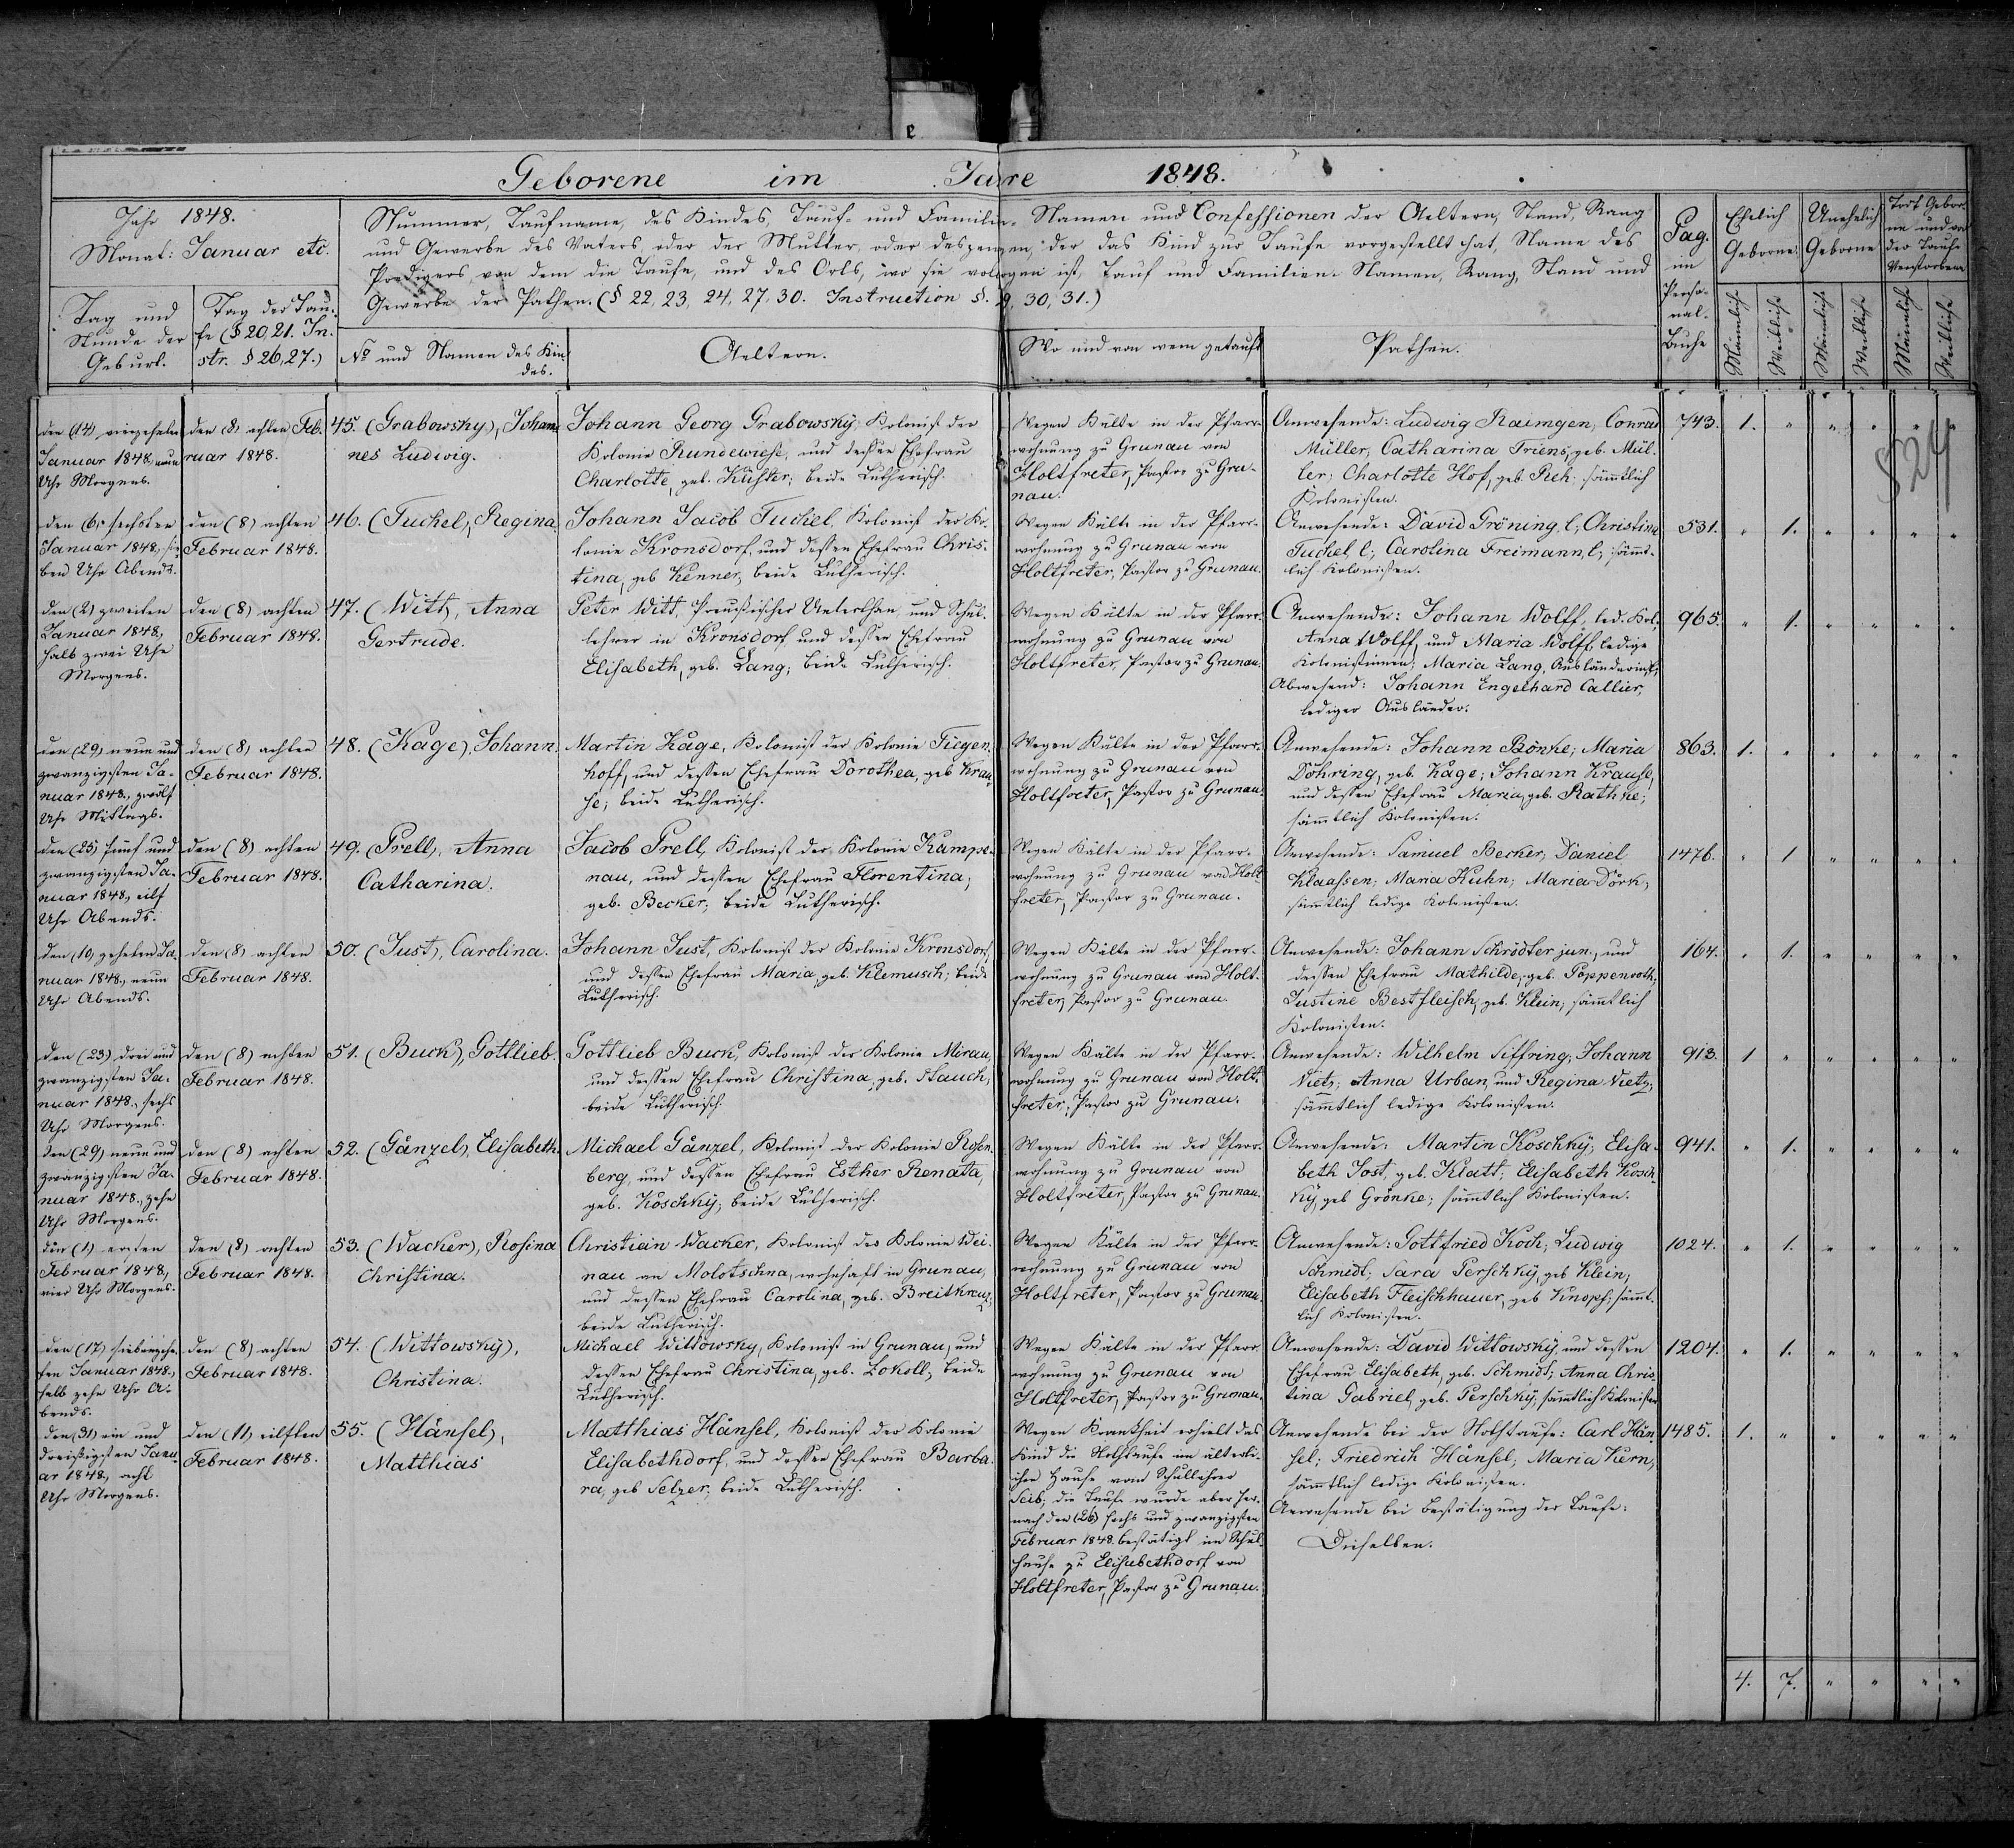 Geborene im Jahre 1848.
Jahr 1848.
Monat: Januar etc.
Tag und
Stunde der
Geburt.
Tag der Tau-
fe (§ 20, 21. In-
str. § 26, 27.)
Nummer, Taufname, des Kindes, Tauf- und Familien- Namen und Confessionen der Aeltern, Stand, Rang
und Gewerbe des Vaters, oder der Mutter, oder desjenigen, der das Kind zur Taufe vorgestellt hat, Name des
Predigers, von dem die Taufe, und des Orts, wo sie vollzogen ist, Tauf und Familien- Namen, Rang, Stand und
Gewerbe der Pathen. (§ 22, 23, 24, 27, 30. Instruction §. 30, 31.)
No und Namen des Kin-
des.
Aeltern.
Wo und von wem getauft
Pathen.
Pag.
im
Perso-
nal-
Buche
Ehelich
Geborne
Unehelich
Geborne
Todt Gebor-
ne und vor
der Taufe
Verstorbene
Männliche
Weibliche
Männliche
Weibliche
Männliche
Weibliche
824
den (14) vierzehnten
Januar 1848, neun
Uhr Morgens.
den (8) achten Feb-
ruar 1848.
45. (Grabowsky), Johan-
nes Ludwig.
Johann Georg Grabowsky, Kolonist der
Kolonie Rundewiese, und dessen Ehefrau
Charlotte, geb. Küster; beide Lutherisch.
Wegen Kälte in der Pfarr-
wohnung zu Grunau von
Holtfreter, Pastor zu Gru-
nau.
Anwesende: Ludwig Raimgen, Conrad
Müller, Catharina Friens, geb. Mül-
ler; Charlotte Hof, geb. Reh; sämmtlich
Kolonisten.
743. 1. " " " " "
den (6) sechsten
Januar 1848, sie-
ben Uhr Abends.
den (8) achten
Februar 1848.
46. (Tuchel), Regina.
Johann Jacob Tuchel, Kolonist der Ko-
lonie Kronsdorf, und dessen Ehefrau Chris-
tina, geb Kenner, beide Lutherisch.
Wegen Kälte in der Pfarr-
wohnung zu Grunau von
Holtfreter, Pastor zu Grunau.
Anwesende: David Gröning, l; Christina
Tuchel, l; Carolina Freimann, l; sämmt-
lich Kolonisten.
531. " 1. " " " "
den (2) zweiten
Januar 1848,
halb zwei Uhr
Morgens.
den (8) achten
Februar 1848.
47. (Witt), Anna
Gertrude.
Peter Witt, Preußischer Unterthan und Schul-
lehrer in Kronsdorf und dessen Ehefrau
Elisabeth, geb. Lang; beide Lutherisch.
Wegen Kälte in der Pfarr-
wohnung zu Grunau von
Holtfreter, Pastor zu Grunau.
Anwesende: Johann Wolff, led. Kol.;
Anna Wolff, und Maria Wolff, ledige
Kolonistinnen; Maria Lang, Ausländerin,
Abwesend: Johann Engelhard Callier,
lediger Ausländer.
965. " 1. " " " "
den (29) neun und
zwanzigsten Ja-
nuar 1848, zwölf
Uhr Mittags.
den (8) achten
Februar 1848.
48. (Kage), Johann.
Martin Kage, Kolonist der Kolonie Tiegen-
hoff, und dessen Ehefrau Dorothea, geb Krau-
se; beide Lutherisch.
Wegen Kälte in der Pfarr-
wohnung zu Grunau von
Holtfreter, Pastor zu Grunau.
Anwesende: Johann Bönke; Maria
Döhring, geb. Kage; Johann Krause,
und dessen Ehefrau Maria, geb. Rathke;
sämmtlich Kolonisten.
863. 1. " " " " "
den (25) fünf und
zwanzigsten Ja-
nuar 1848, eilf
Uhr Abends.
den (8) achten
Februar 1848.
49. (Prell), Anna
Catharina.
Jacob Prell, Kolonist der Kolonie Kampe-
nau, und dessen Ehefrau Florentina,
geb. Becker, beide Lutherisch.
Wegen Kälte in der Pfarr-
wohnung zu Grunau von Holt-
freter, Pastor zu Grunau.
Anwesende: Samuel Becker, Daniel
Klaassen; Maria Kuhn; Maria Dörk,
sämmtlich ledige Kolonisten.
1476. " 1 " " " "
den (10) zehnten Ja-
nuar 1848, neun
Uhr Abends.
den (8) achten
Februar 1848.
50. (Just), Carolina.
Johann Just, Kolonist der Kolonie Kronsdorf,
und dessen Ehefrau Maria, geb. Klemusch; beide
Lutherisch.
Wegen Kälte in der Pfarr-
wohnung zu Grunau von Holt-
freter, Pastor zu Grunau.
Anwesende: Johann Schrödter jun., und
dessen Ehefrau Mathilde, geb. Poppenroth;
Justine Bestfleisch, geb. Klein; sämmtlich
Kolonisten.
164. " 1. " " " "
den (23) drei und
zwanzigsten Ja-
nuar 1848, sechs
Uhr Morgens.
den (8) achten
Februar 1848.
51. (Buck), Gottlieb.
Gottlieb Buck, Kolonist der Kolonie Mirau,
und dessen Ehefrau Christina, geb. Stauch,
beide Lutherisch.
Wegen Kälte in der Pfarr-
wohnung zu Grunau von Holt-
freter, Pastor zu Grunau.
Anwesende: Wilhelm Siffring; Johann
Vietz; Anna Urban, und Regina Vietz,
sämmtlich ledige Kolonisten.
913. 1 " " " " "
den (29) neun und
zwanzigsten Ja-
nuar 1848, zehn
Uhr Morgens.
den (8) achten
Februar 1848.
52. (Gänzel), Elisabeth.
Michael Gänzel, Kolonist der Kolonie Rosen-
berg, und dessen Ehefrau Esther Renata,
geb. Koschky; beide Lutherisch.
Wegen Kälte in der Pfarr-
wohnung zu Grunau von
Holtfreter, Pastor zu Grunau.
Anwesende: Martin Koschky; Elisa-
beth Jost, geb. Klatt; Elisabeth Kosch-
ky, geb Grönke; sämmtlich Kolonisten.
941. " 1. " " " "
den (1) ersten
Februar 1848,
vier Uhr Morgens.
den (8) achten
Februar 1848.
53. (Wacker), Rosina
Christina.
Christian Wacker, Kolonist der Kolonie Wei-
nau an Molotschna, wohnhaft in Grunau,
und dessen Ehefrau Carolina, geb. Breitkreuz;
beide Lutherisch.
Wegen Kälte in der Pfarr-
wohnung zu Grunau von
Holtfreter, Pastor zu Grunau.
Anwesende: Gottfried Koch; Ludwig
Schmidt; Sara Perschky, geb Klein;
Elisabeth Fleischhauer, geb Knopf; sämmt-
lich Kolonisten.
1024. " 1. " " " "
den (17) siebenzehn-
ten Januar 1848,
halb zehn Uhr A-
bends.
den (8) achten
Februar 1848.
54. (Wittowsky),
Christina.
Michael Wittowsky, Kolonist in Grunau, und
dessen Ehefrau Christina, geb. Lokoll, beide
Lutherisch.
Wegen Kälte in der Pfarr-
wohnung zu Grunau von
Holtfreter, Pastor zu Grunau.
Anwesende: David Wittowsky und dessen
Ehefrau Elisabeth, geb. Schmidt; Anna Chris-
tina Gabriel, geb. Perschky; sämmtlich Kolonisten
1204. " 1. " " " "
den (31) ein und
dreißigsten Janu-
ar 1848, acht
Uhr Morgens.
den (11) eilften
Februar 1848.
55. (Hänsel),
Matthias
Matthias Hänsel, Kolonist der Kolonie
Elisabethdorf, und dessen Ehefrau Barba-
ra, geb Selzer; beide Lutherisch.
Wegen Krankheit erhielt das
Kind die Nothtaufe im älterli-
chen Hause vom Schullehrer
Seib; die Taufe wurde aber her-
nach den (26) sechs und zwanzigsten
Februar 1848. bestätigt im Schul-
hause zu Elisabethdorf von
Holtfreter, Pastor zu Grunau.
Anwesende bei der Nothtaufe: Carl Hän-
sel; Friedrich Hänsel; Maria Kern,
sämmtlich ledige Kolonisten.
Anwesende bei Bestätigung der Taufe:
Dieselben.
1485. 1. " " " " "
4. 7. " " " "